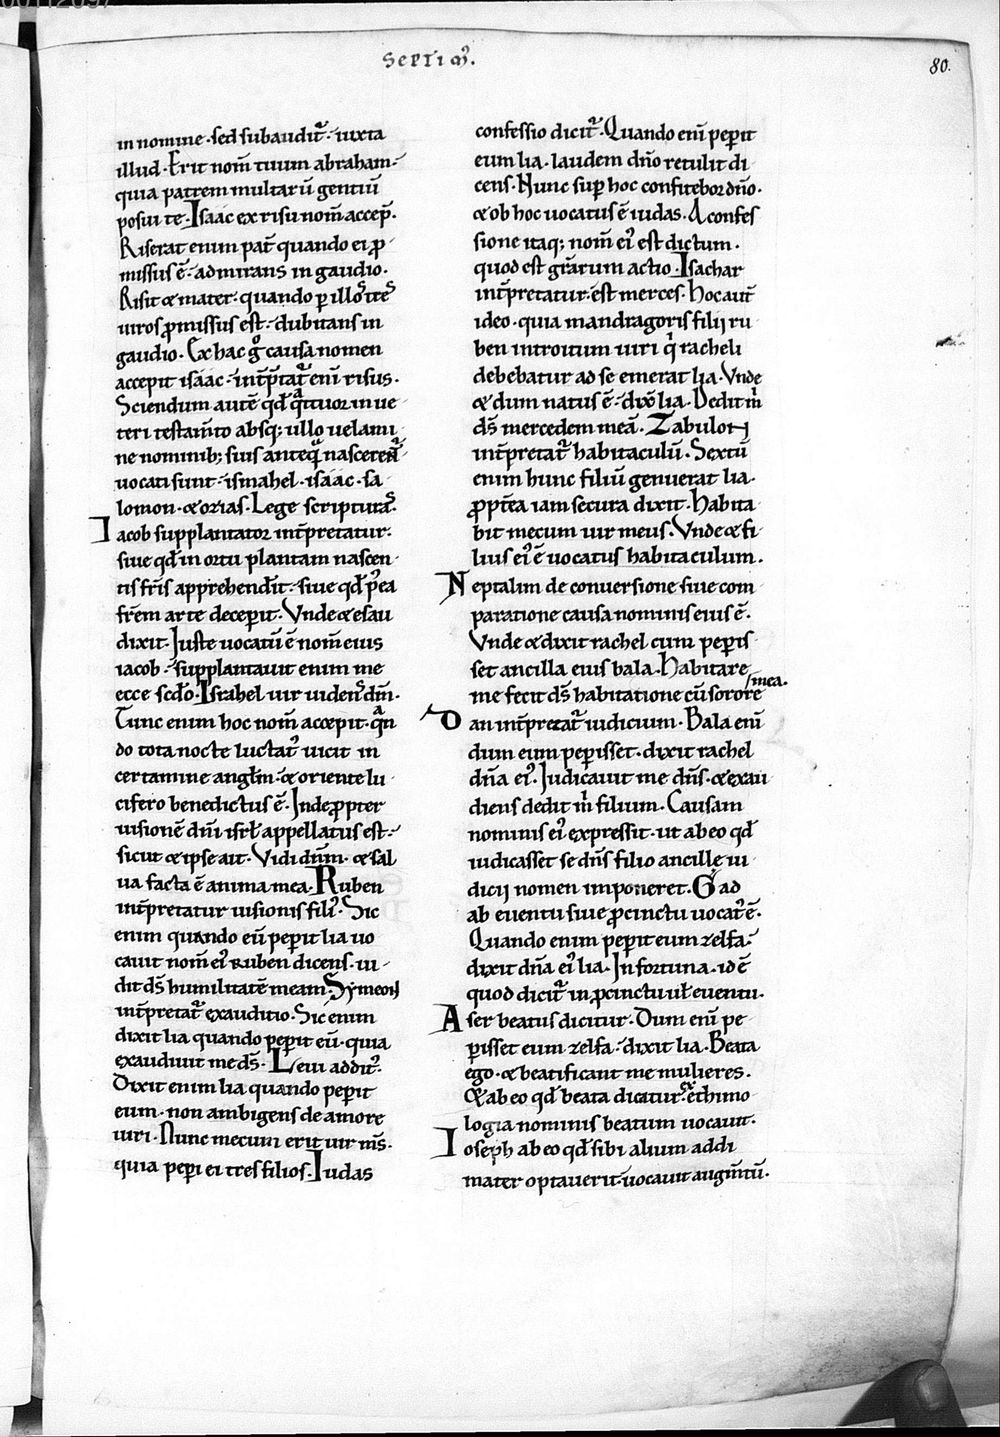 Septim᷒.
80.
in nomine · sed subaudit᷑ · iuxta
illud · Erit nom̄ tuum abraham ·
quia patrem multarū gentiū
posui te · Isaac ex risu nom̄ accep̄ ·
Riserat enim pat̄ quando ei ꝓ
missus ē · admirans in gaudio ·
Risit & mater · quando ꝑ illos tres
uiros ꝓmissus est · dubitans in
gaudio · Ex hac gͦ causa nomen
accepit isaac · int̄p̄tat᷑ enī risus ·
Sciendum autē qd̄ qͣttuor in ue
teri testam̄to absq; ullo uelami
ne nominib; suis anteqͣ nascerent᷑
uocati sunt · ismahel · isaac · sa
lomon · & ozias · Lege scripturas ·
Iacob supplantator int̄pretatur ·
siue qd̄ in ortu plantam nascen
tis fr̄is apprehendit · siue qd̄ p᷒ea
fr̄em arte deceperit · Vnde & esau
dixit · Iuste uocatū ē nom̄ eius
iacob · supplantauit enim me
ecce scd̄o · Israhel uir uidens dm̄ ·
Tunc enim hoc nom̄ accepit · qͣn
do tota nocte luctat᷒ uicit in
certamine angl̄m · & oriente lu
cifero benedictus ē · Inde ꝓpter
uisionē dn̄i isrl̄ appellatus est ·
sicut & ipse ait · Vidi dn̄m · & sal
ua facta ē anima mea · Ruben
int̄pretatur uisionis fili᷒ · Sic
enim quando eū peperit lia uo
cauit nom̄ ei᷒ ruben dicens · ui
dit ds̄ humilitatē meam · Symeon
int̄pretat᷑ exauditio · Sic enim
dixit lia quando peperit eū · quia
exaudiuit me ds̄ · Leui addit᷒ ·
Dixit enim lia quando peperit
eum · non ambigens de amore
uiri · Nunc mecum erit uir ms̄ ·
quia peperi ei tres filios · Iudas
confessio dicit᷑ · Quando enī peperit
eum lia · laudem dn̄o retulit di
cens · Nunc suꝑ hoc confitebor dn̄o ·
& ob hoc uocatus ē iudas · A confes
sione itaq; nom̄ ei᷒ est dictum ·
quod est gr̄arum actio · Isachar
int̄pretatur · est merces · Hoc aut̄
ideo · quia mandragoris filij ru
ben introitum uiri qͥ racheli
debebatur ad se emerat lia · Vnde
& dum natus ē · dix̄ lia · Dedit mͥ
ds̄ mercedem meā · Zabulon
int̄pretat᷑ habitaculū · Sextū
enim hunc filiū genuerat lia ·
ꝓpt̄ea iam secura dixit · Habita
bit mecum uir meus · Vnde & fi
lius ei᷒ ē uocatus habitaculum ·
Neptalim de conuersione siue com
paratione causa nominis eius ē ·
Vnde & dixit rachel cum peperis
set ancilla eius bala · Habitare
me fecit ds̄ habitatione cū sorore / mea ·
Dan int̄pretat᷑ iudicium · Bala enī
dum eum peperisset · dixit rachel
dn̄a ei᷒ · Iudicauit me dn̄s · & exau
diens dedit mͥ filium · Causam
nominis ei᷒ expressit · ut ab eo qd̄
iudicasset se dn̄s filio ancille iu
dicij nomen imponeret · Gad
ab euentu siue ꝓcinctu uocat᷒ ē ·
Quando enim peperit eum zelfa ·
dixit dn̄a ei᷒ lia · In fortuna · id ē
quod dicit᷑ in ꝓcinctu ul̄ euentu ·
Aser beatus dicitur · Dum enī pe
perisset eum zelfa · dixit lia · Beata
ego · & beatificant me mulieres ·
& ab eo qd̄ beata dicatur · ex ethimo
logia nominis beatum uocauit ·
Ioseph ab eo qd̄ sibi alium addi
mater optauerit · uocauit augm̄tū ·